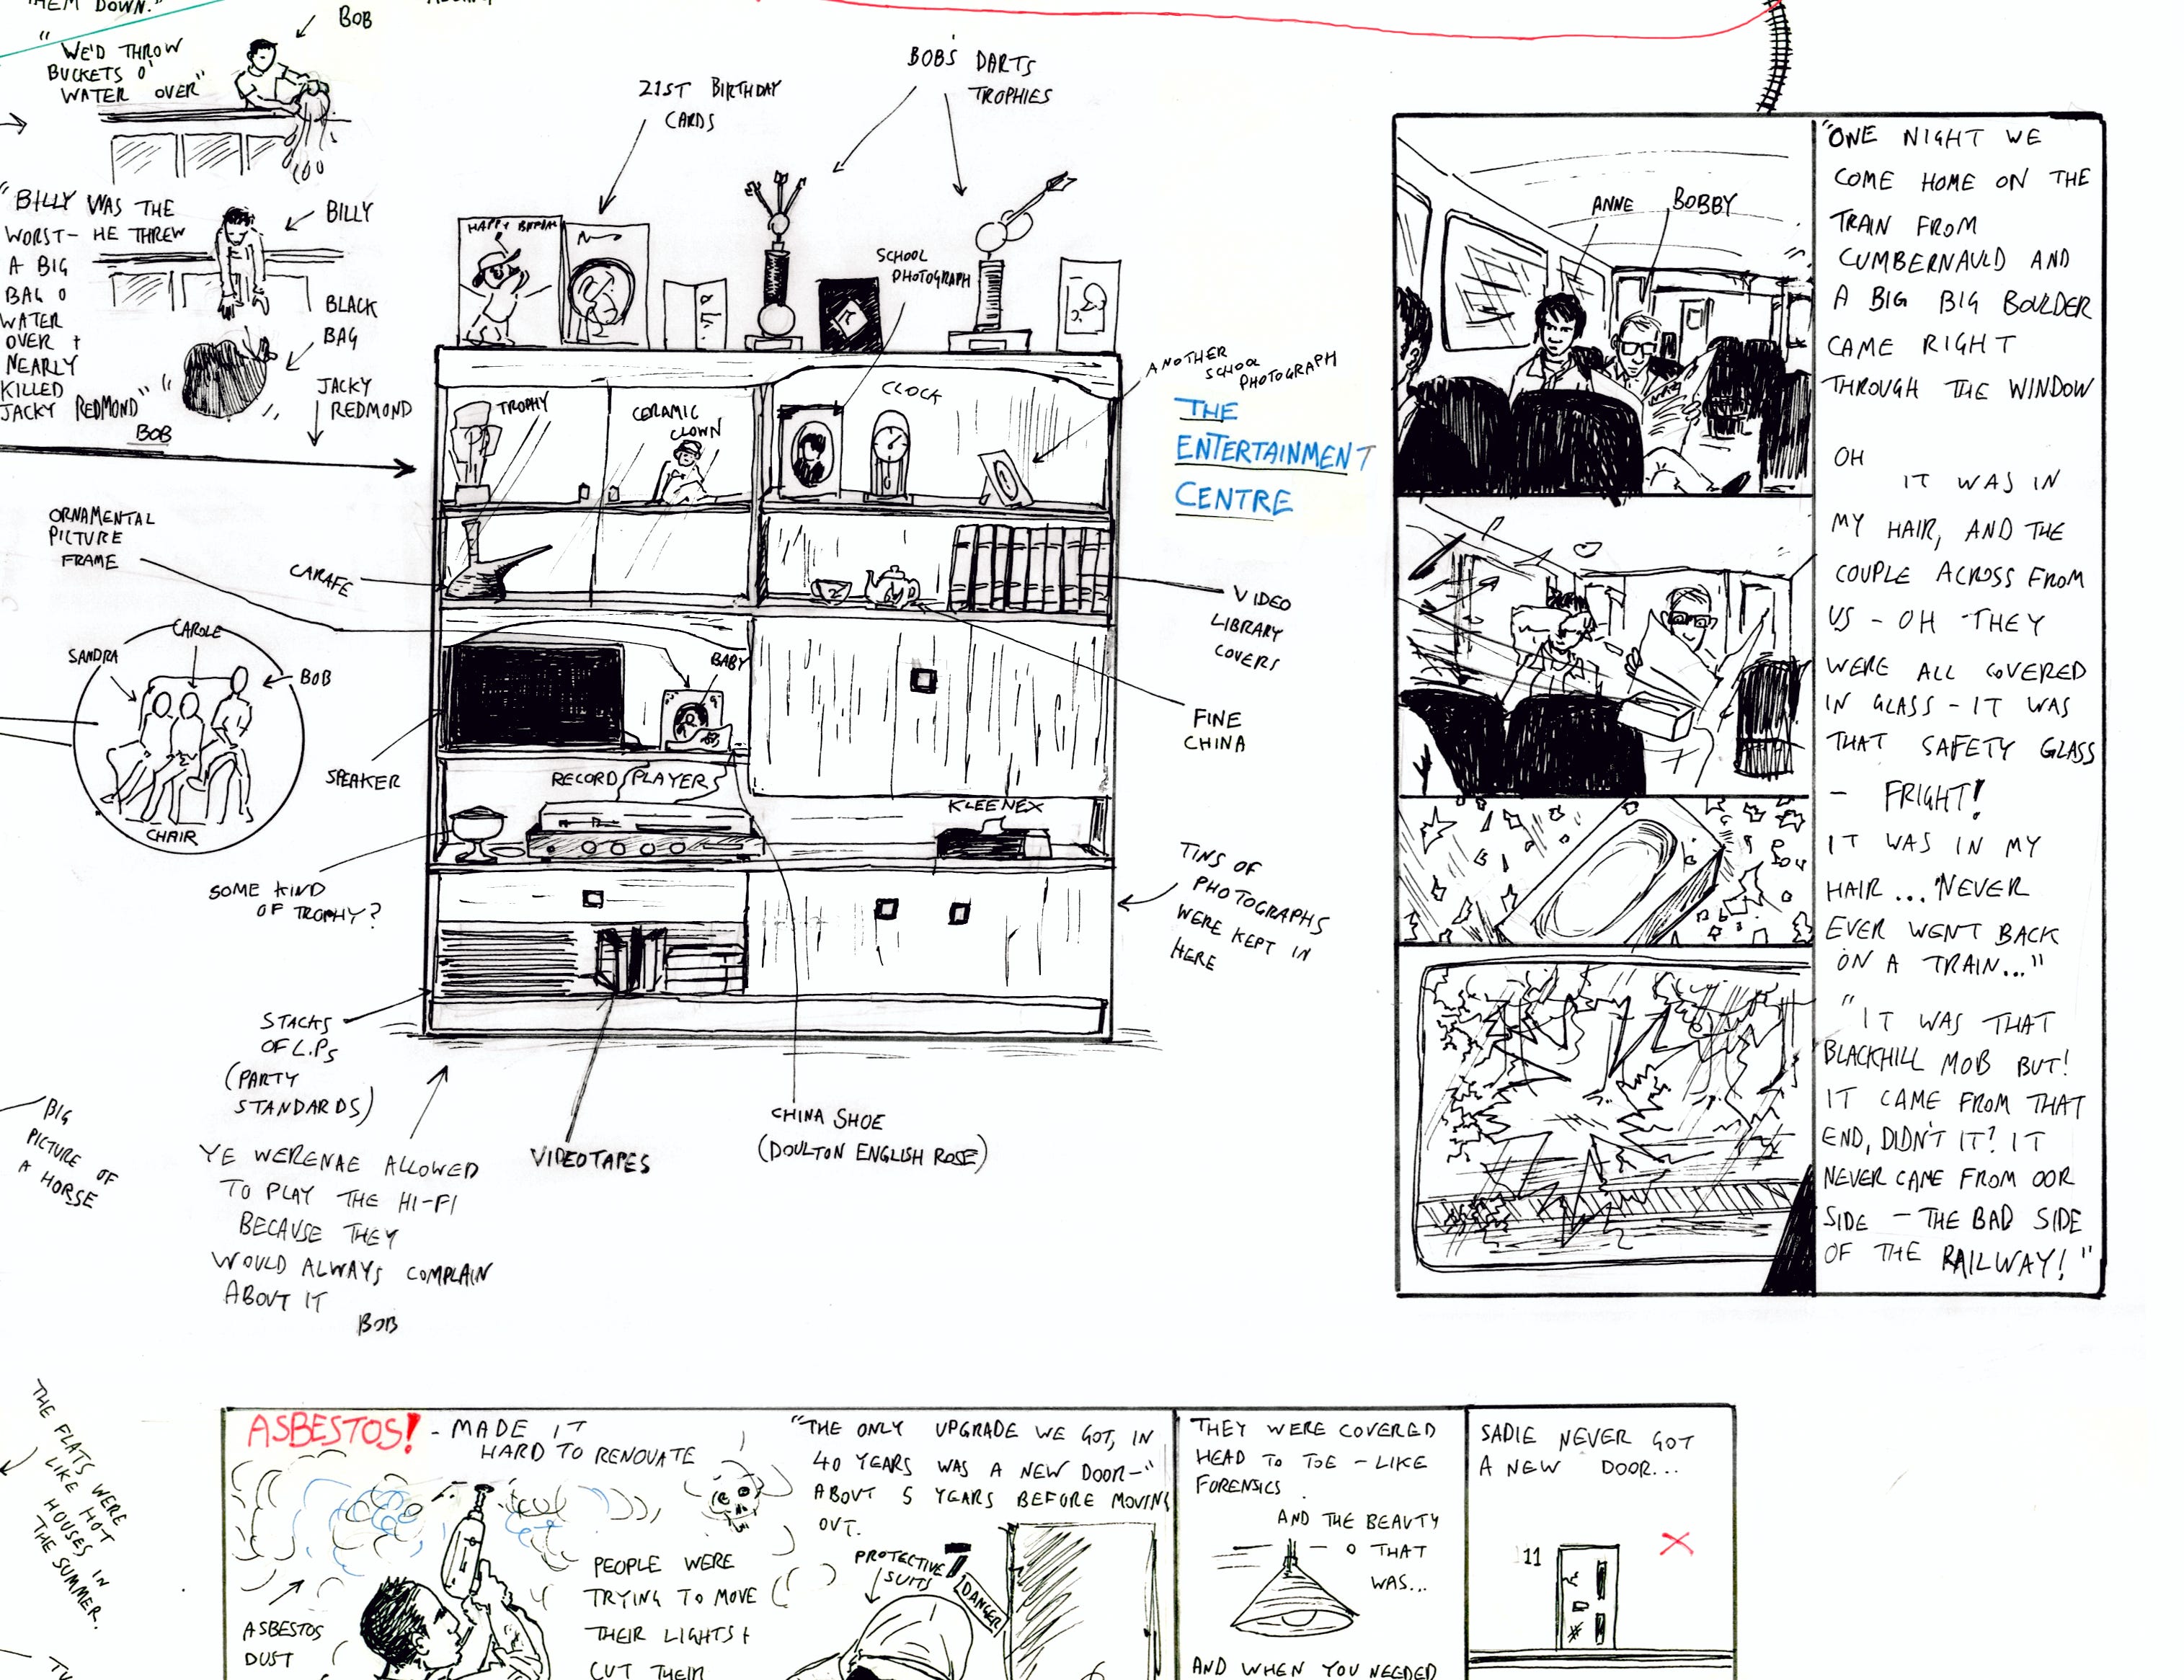 THEM DOWN."
BOB
"WE'D THROW
BUCKETS O'
WATER OVER"
"BILLY WAS THE
WORST - HE THREW
A BIG
BAG O
WATER
OVER +
NEARLY
KILLED
JACKY REDMOND"
BOB
BILLY
BLACK
BAG
JACKY
REDMOND
21ST BIRTHDAY
CARDS
BOB'S DARTS
TROPHIES
SCHOOL
PHOTOGRAPH
ANOTHER
SCHOOL
PHOTOGRAPH
THE
ENTERTAINMENT
CENTRE
TROPHY
CERAMIC
CLOWN
CLOCK
ORNAMENTAL
PICTURE
FRAME
CARAFE
VIDEO
LIBRARY
COVERS
FINE
CHINA
BABY
SPEAKER
RECORD PLAYERS
KLEENEX
SANDRA
CAROLE
BOB
CHAIR
SOME KIND
OF TROPHY?
TINS OF
PHOTOGRAPHS
WERE KEPT IN
HERE
STACKS
OF L.PS
(PARTY
STANDARDS)
VIDEOTAPES
CHINA SHOE
(DOULTON ENGLISH ROSE)
YE WERENAE ALLOWED
TO PLAY THE HI-FI
BECAUSE THEY
WOULD ALWAYS COMPLAIN
ABOUT IT
BOB
BIG
PICTURE OF
A HORSE
ANNE
BOBBY
"ONE NIGHT WE
COME HOME ON THE
TRAIN FROM
CUMBERNAULD AND
A BIG BIG BOULDER
CAME RIGHT
THROUGH THE WINDOW
OH
IT WAS IN
MY HAIR, AND THE
COUPLE ACROSS FROM
US - OH THEY
WERE ALL COVERED
IN GLASS - IT WAS
THAT SAFETY GLASS
- FRIGHT!
IT WAS IN MY
HAIR... NEVER
EVER WENT BACK
ON A TRAIN..."
"IT WAS THAT
BLACKHILL MOB BUT!
IT CAME FROM THAT
END, DIDN'T IT? IT
NEVER CAME FROM OOR
SIDE - THE BAD SIDE
OF THE RAILWAY!"
THE FLATS WERE
LIKE HOT
HOUSES IN
THE SUMMER.
ASBESTOS! - MADE IT
HARD TO RENOVATE
ASBESTOS
DUST
PEOPLE WERE
TRYING TO MOVE
THEIR LIGHTS +
CUT THEIR
"THE ONLY UPGRADE WE GOT, IN
40 YEARS WAS A NEW DOOR-"
ABOUT 5 YEARS BEFORE MOVING
OUT.
PROTECTIVE
SUITS
DANGER
THEY WERE COVERED
HEAD TO TOE - LIKE
FORENSICS
AND THE BEAUTY
- O THAT
WAS...
AND WHEN YOU NEEDED
SADIE NEVER GOT
A NEW DOOR...
11